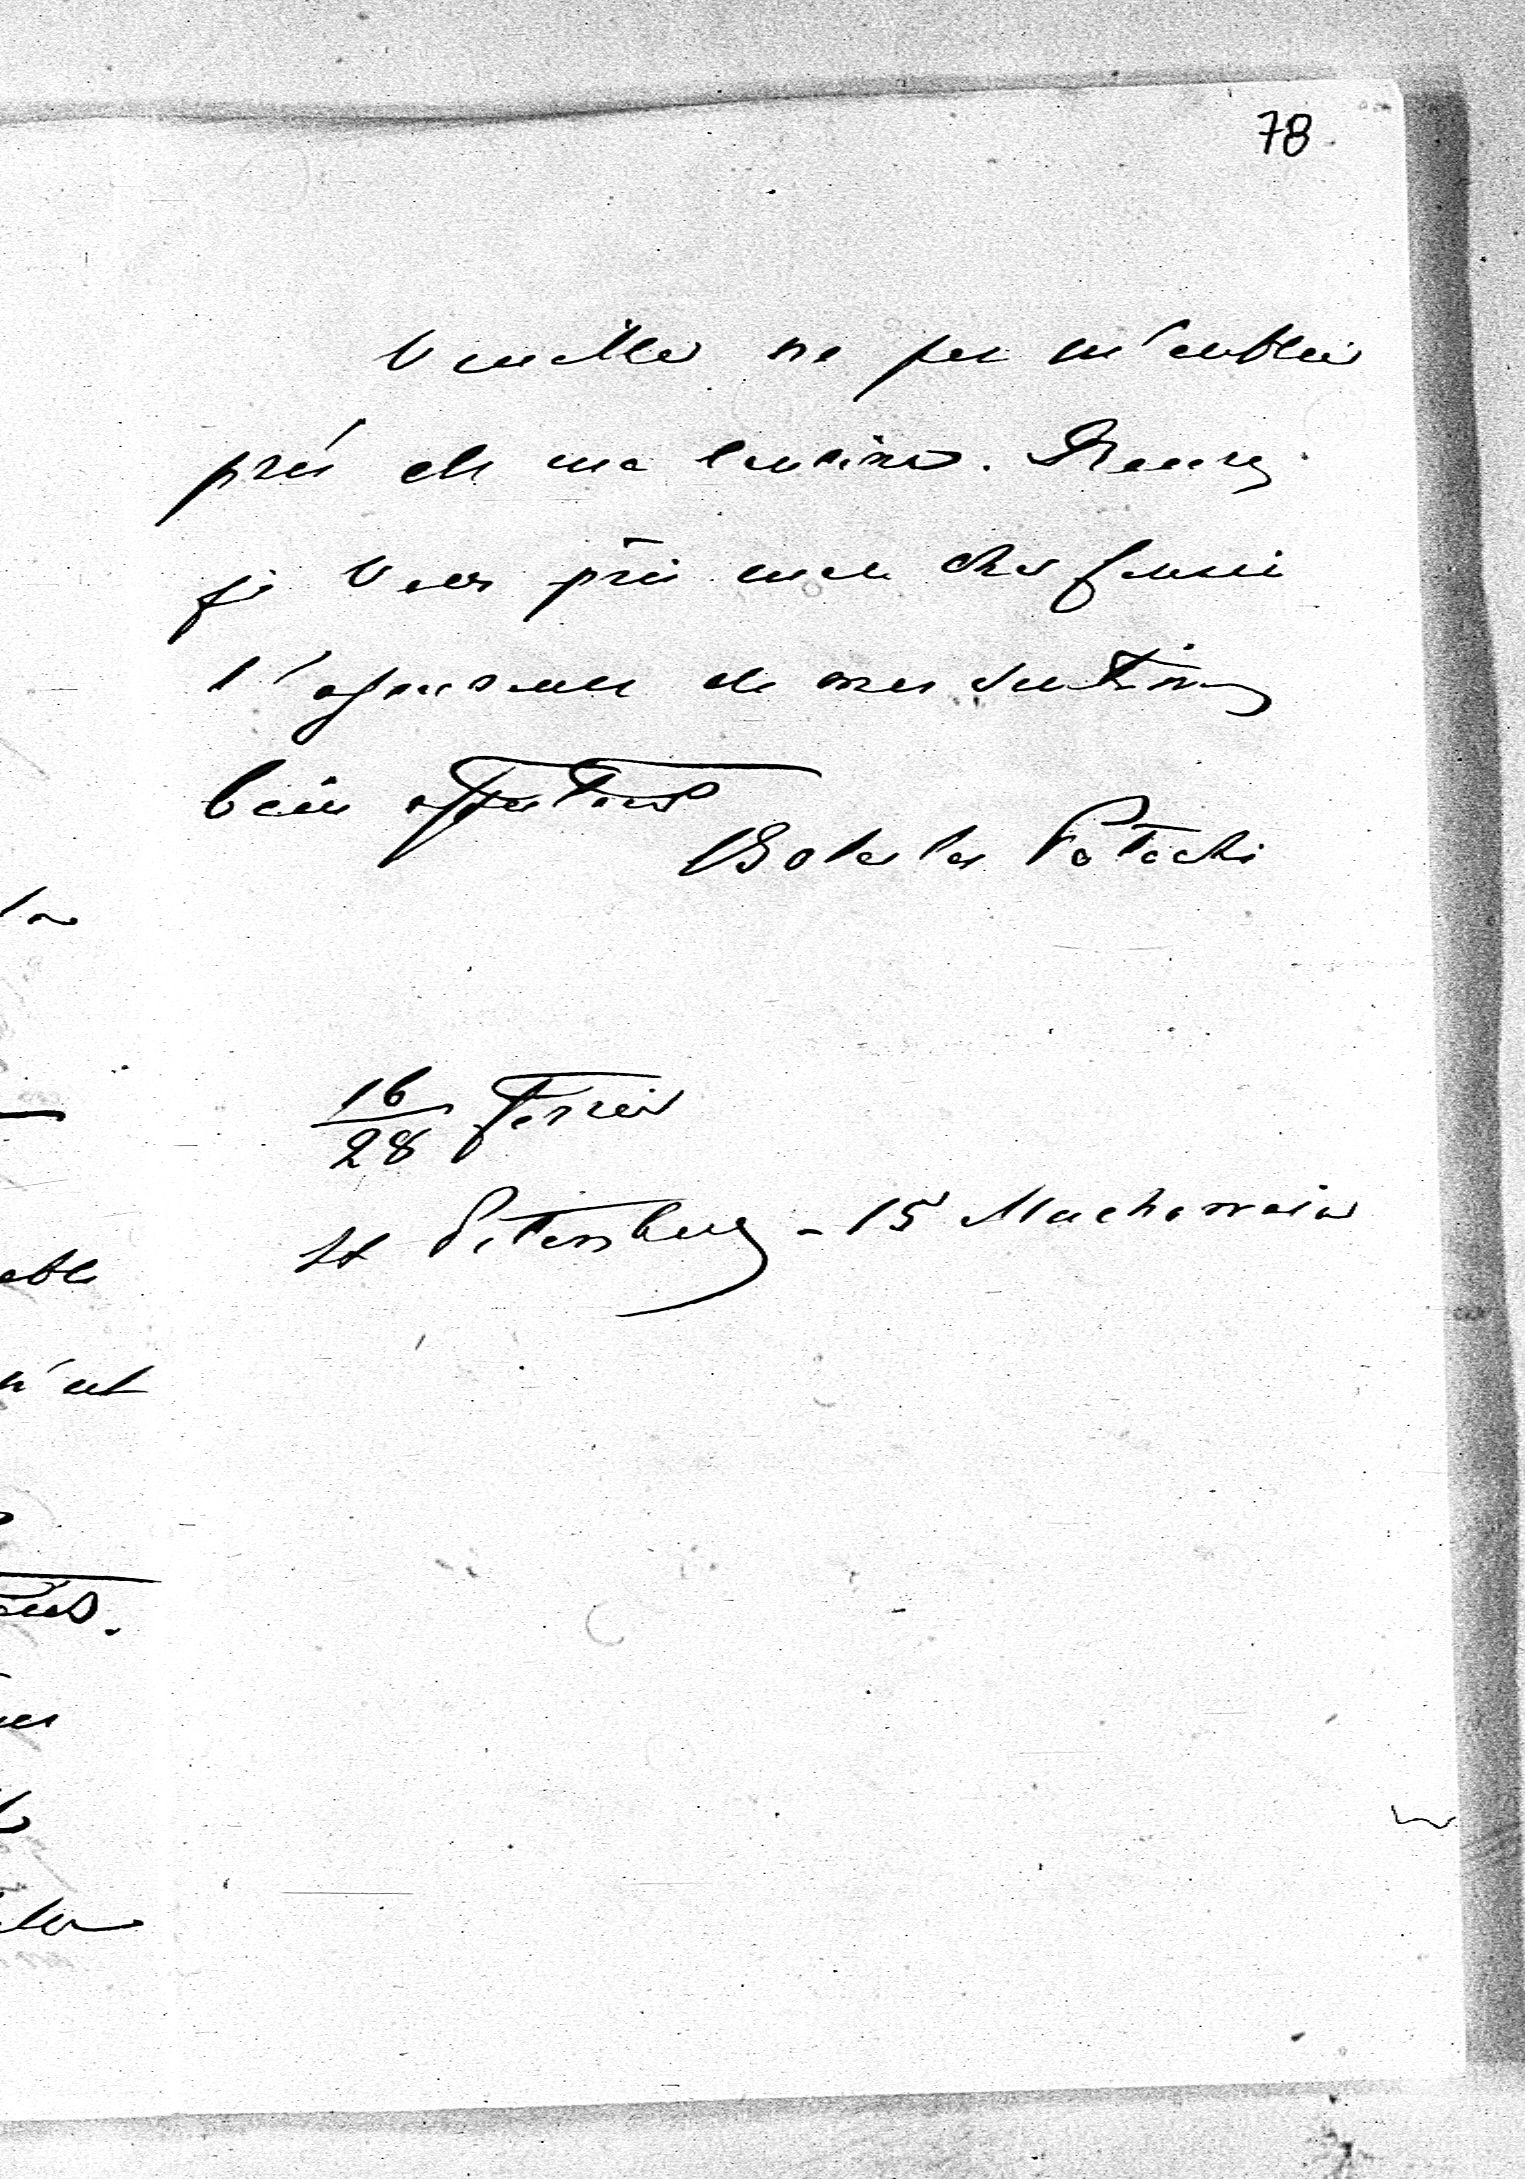 78
Veuillez ne pas m'oublier
près de ma cousine. Recevez
je vous prie mon cher
l'expression de mes sentiments
bien affectueux
Boleslas Potocki
16/28 Fevrier
St Petersburg - 15 Mochowaia
la
able
n'est